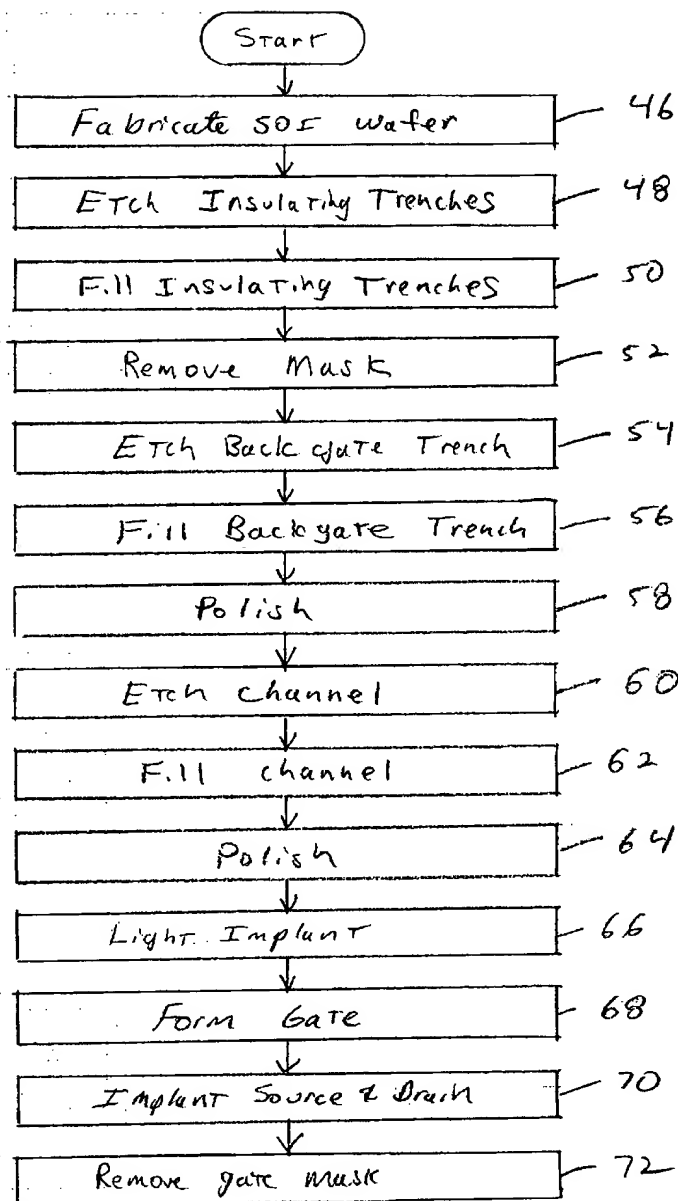 Start
Fabricate SOI wafer 46
Etch Insulating Trenches 48
Fill Insulating Trenches 50
Remove Mask 52
Etch Backgate Trench 54
Fill Backgate Trench 56
Polish 58
Etch channel 60
Fill channel 62
Polish 64
Light Implant 66
Form Gate 68
Implant Source & Drain 70
Remove gate mask 72